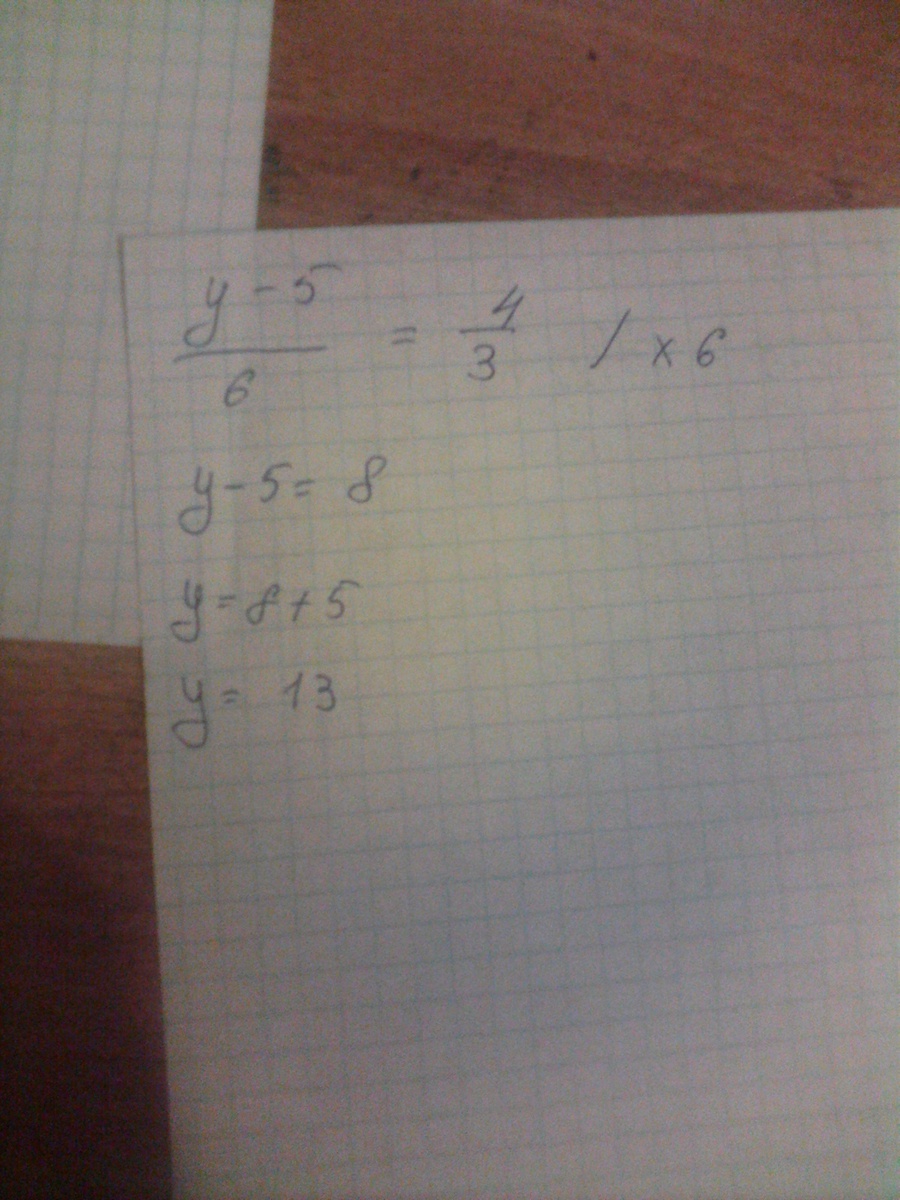 y - 5 / 6 = 4 / 3 / x 6
y - 5 = 8
y = 8 + 5
y = 13